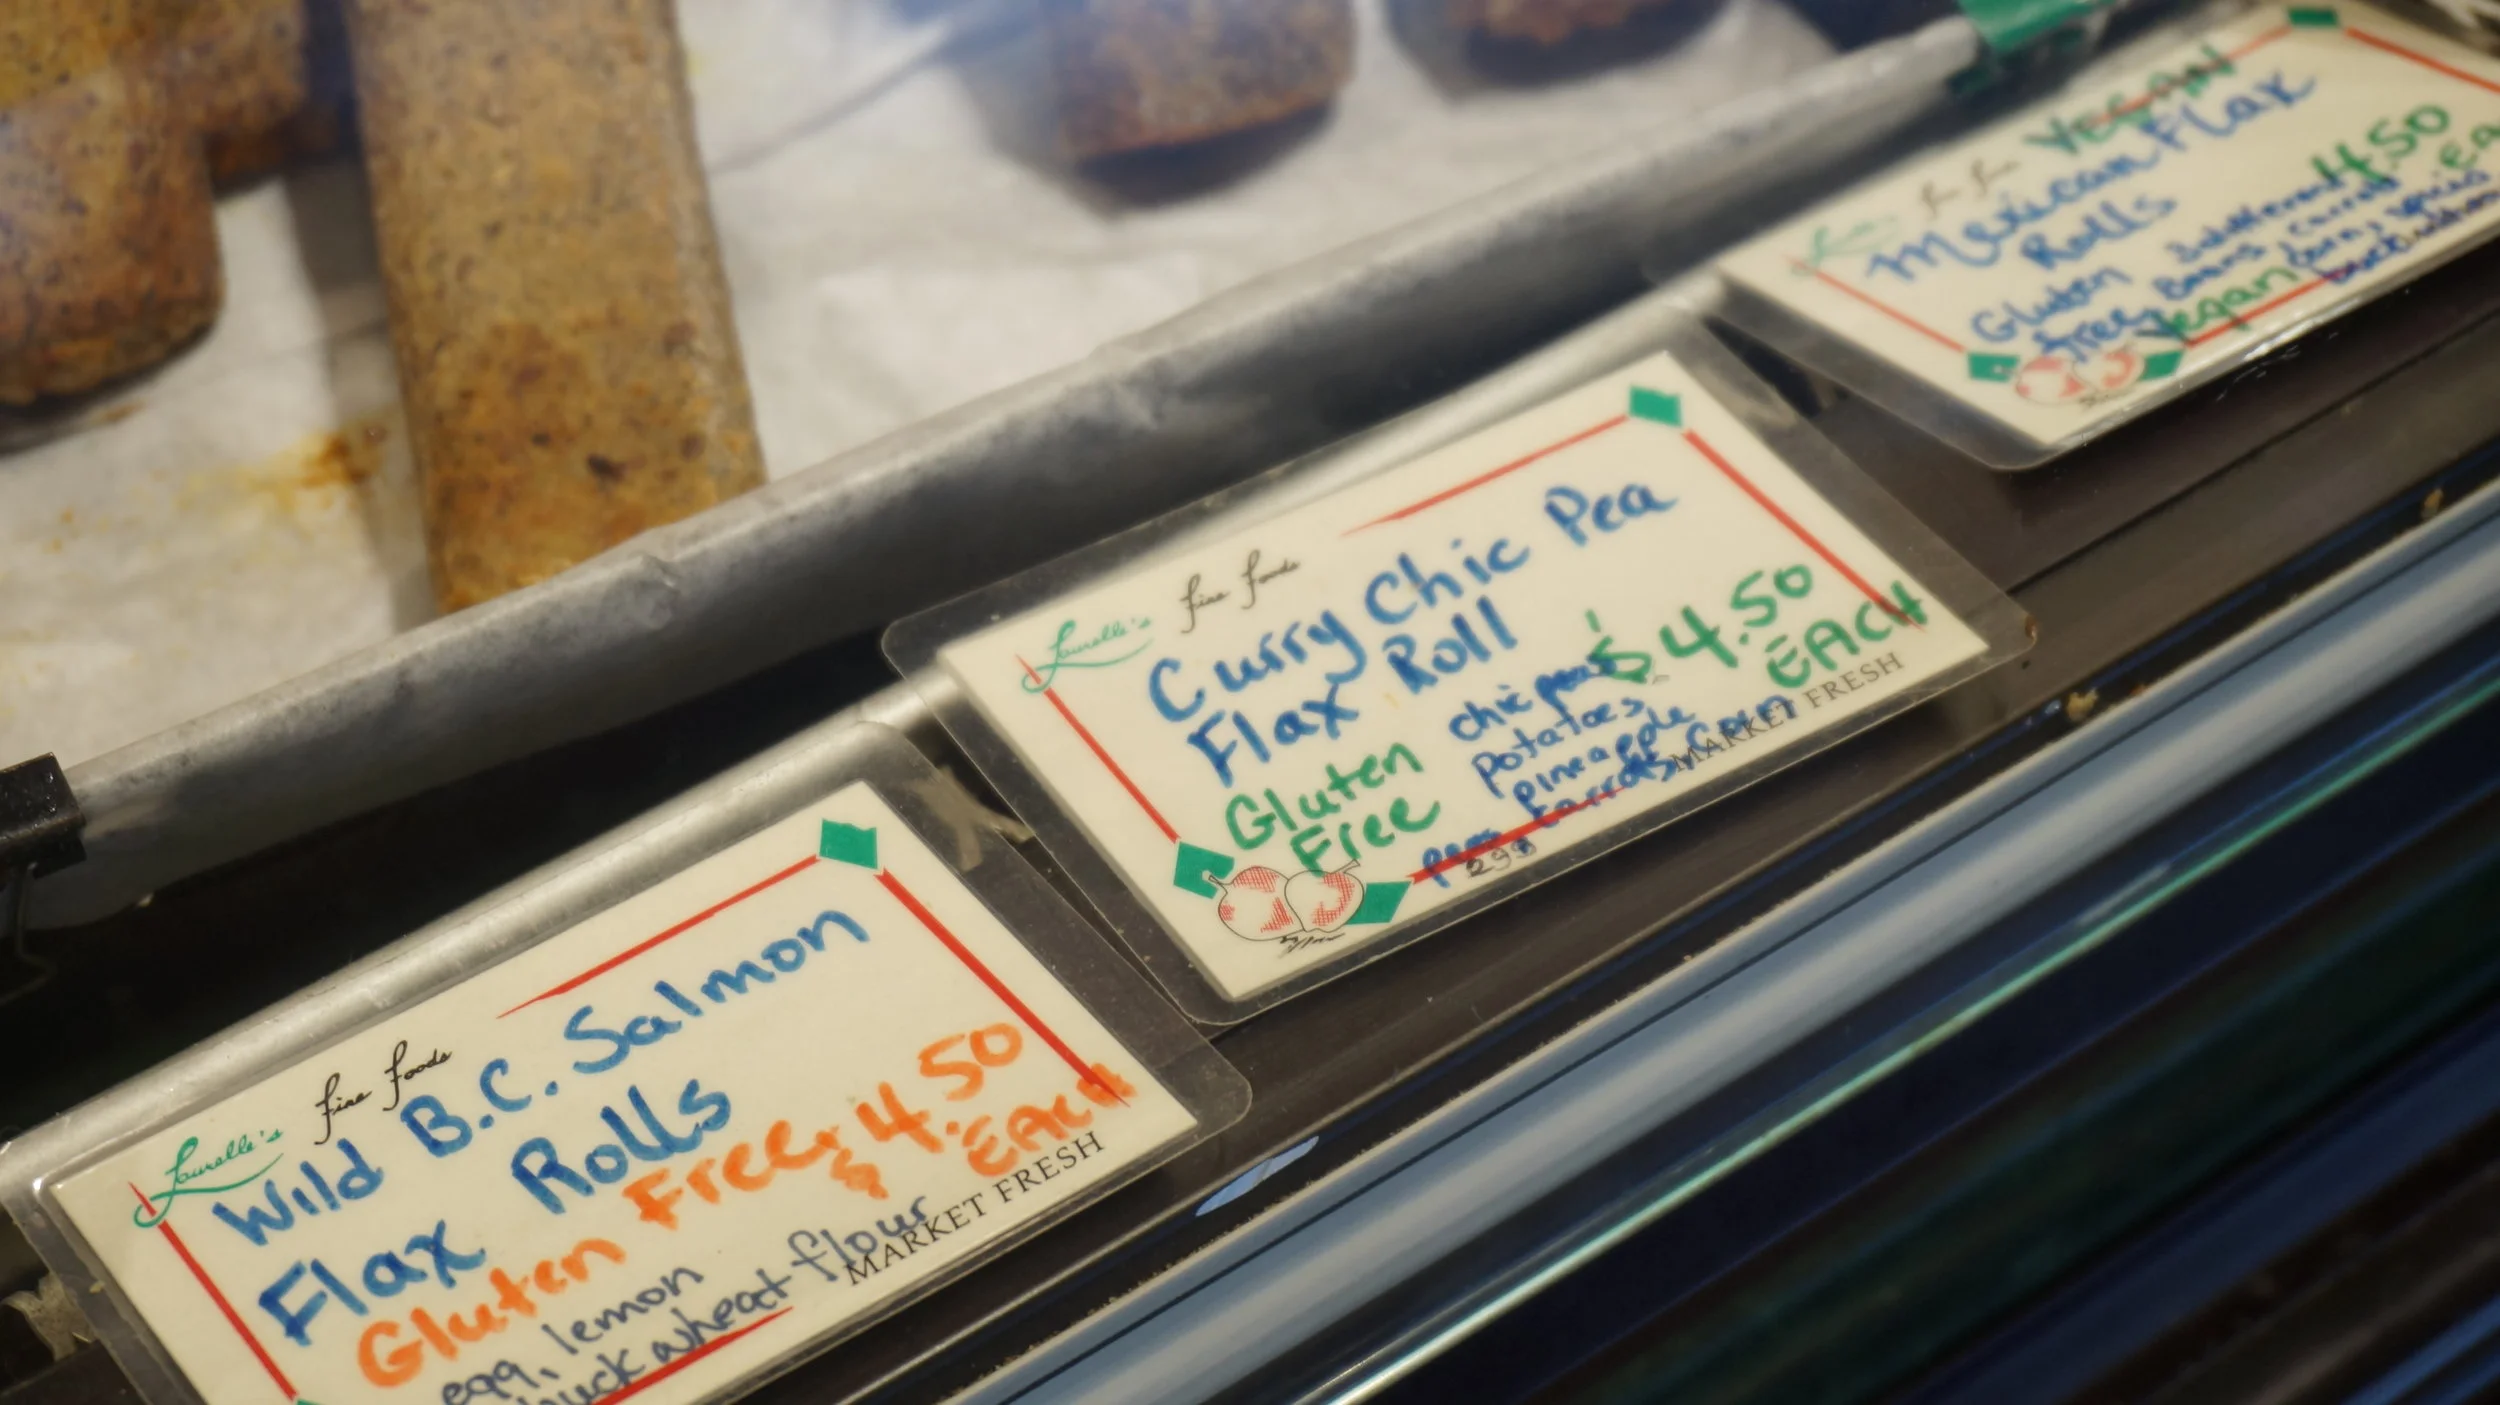 Laurelle's Fine Foods
Wild B.C. Salmon
Flax Rolls
Gluten Free $4.50
EACH
egg, lemon
buckwheat flour
MARKET FRESH
Laurelle's Fine Foods
Curry Chic Pea
Flax Roll
$4.50
EACH
Gluten
Free
chic peas
potatoes
pineapple
peas carrots, corn
MARKET FRESH
299
VEGAN
Mexican Flax
Rolls
4.50
Ea
Gluten
free
Vegan
Beans, carrots
corn, spices